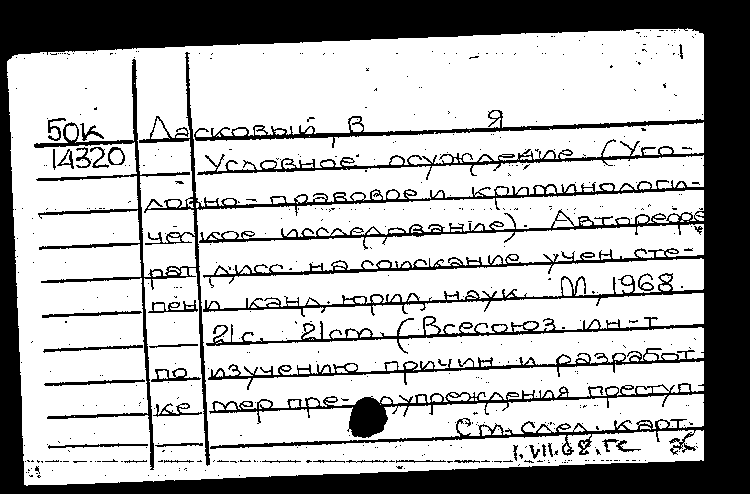 1
50к Ласковый, В Я
14320 Условное осуждение. (Уго-
ловно-правовое и криминологи-
ческое исследование). Авторефе
рат дисс. на соискание учен. сте-
пени канд. юрид. наук. М., 1968.
21с. 21cm. (Всесоюз. ин-т
по изучению причин и разработ-
ке мер пре- дупреждения преступ-
См. след. карт.
1.VII.68.гс